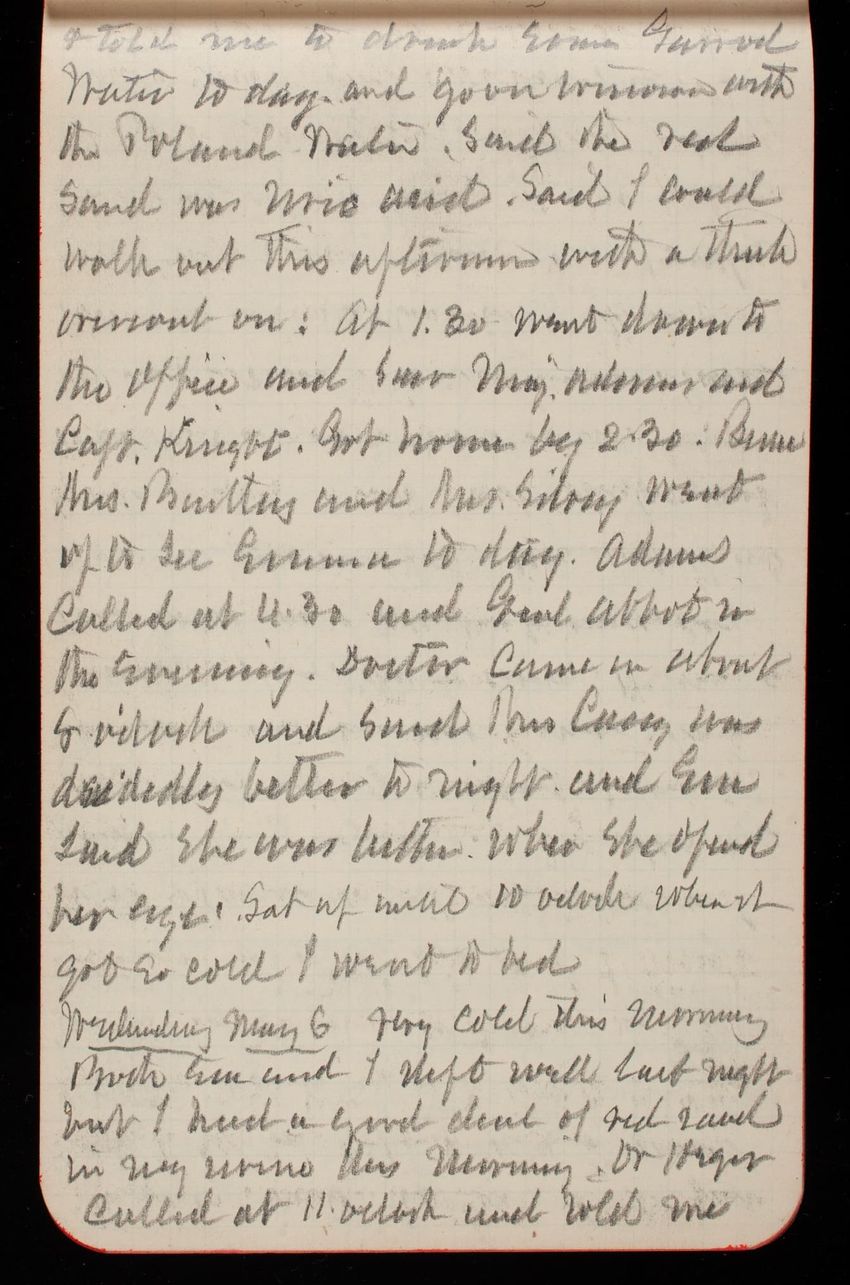 & told me to drink some
Water to day. and go on with
the Poland Water. Said the red
Sand was Uric acid. Said I could
walk out this afternoon with a thick
overcoat on: At 1.30 went down to
the Office and saw Maj. Adams and
Capt. Knight. Got home by 2.30.
Mrs. and Mrs. went
up to see Emma to day. Adams
Called at 4.30 and Genl Abbot in
the Evening. Doctor Came in about
8 o'clock and said Mrs Casey was
decidedly better to night. and Em
Said She was better. When She opend
her eye. Sat up until 10 oclock when it
got so cold I went to bed
Wednesday May 6 Very cold this Morning
Both Em and I slept well last night
but I had a good deal of red sand
in my urine this Morning. Dr
Called at 11. oclock and told me